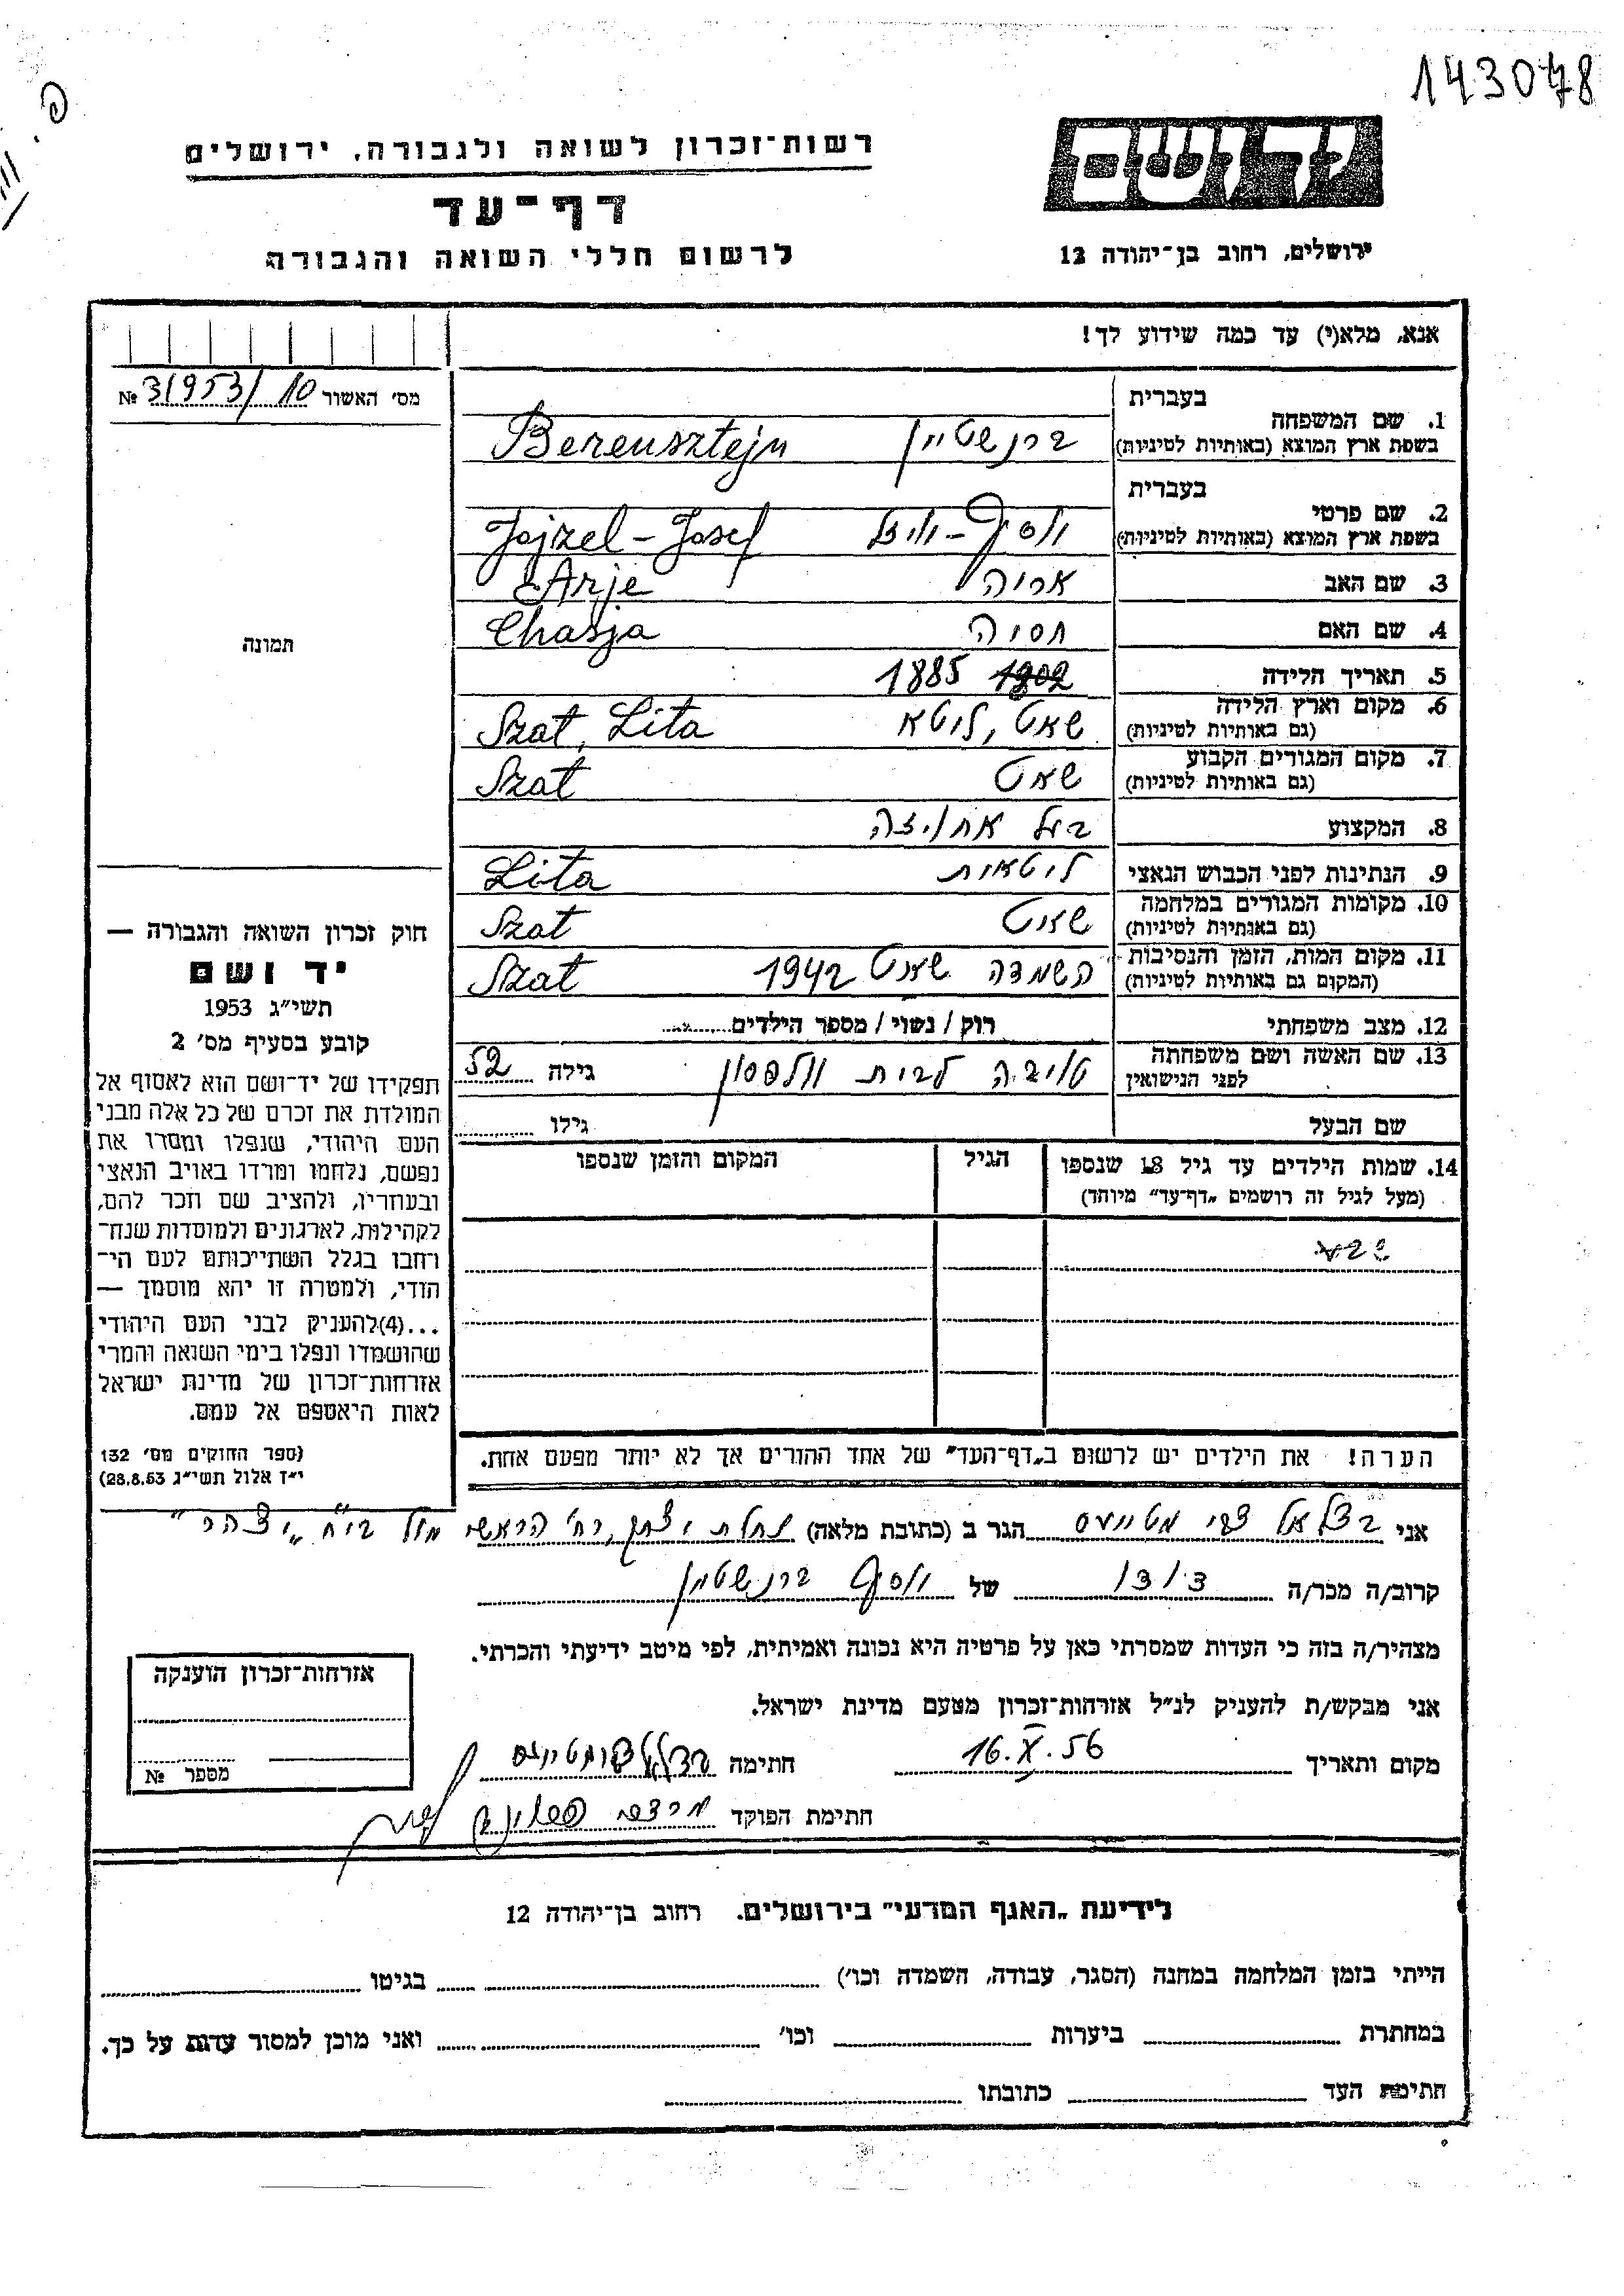 143078
רשות־זכרון לשואה ולגבורה, ירושלים
דף־עד
לרשום חללי השואה והגבורה
ידושם
ירושלים, רחוב בן־יהודה 12
אנא, מלא(י) עד כמה שידוע לך!
מס׳ האשור 31953/10 №
בעברית
1. שם המשפחה
בשפת ארץ המוצא (באותיות לטיניות)
ברנשטיין Berensztejn
בעברית
2. שם פרטי
בשפת ארץ המוצא (באותיות לטיניות)
Jojzel - Josef
3. שם האב אריה Arje
4. שם האם חסיה Chasja
5. תאריך הלידה 1902 1885
6. מקום וארץ הלידה שאט, ליטא Szat, Lita
(גם באותיות לטיניות)
7. מקום המגורים הקבוע שאט Szat
(גם באותיות לטיניות)
8. המקצוע בעל אחוזה
9. הנתינות לפני הכבוש הנאצי ליטאית Lita
10. מקומות המגורים במלחמה שאט Szat
(גם באותיות לטיניות)
11. מקום המות, הזמן והנסיבות השמדה שאט 1942 Szat
(המקום גם באותיות לטיניות)
12. מצב משפחתי רוק / נשוי / מספר הילדים
13. שם האשה ושם משפחתה טויבה לבית וולפסון גילה 52
לפני הנישואין
שם הבעל גילו
14. שמות הילדים עד גיל 18 שנספו הגיל המקום והזמן שנספו
(מעל לגיל זה רושמים „דף־עד״ מיוחד)
הערה! את הילדים יש לרשום ב„דף־העד״ של אחד ההורים אך לא יותר מפעם אחת.
תמונה
חוק זכרון השואה והגבורה —
יד ושם
תשי״ג 1953
קובע בסעיף מס׳ 2
תפקידו של יד־ושם הוא לאסוף אל
המולדת את זכרם של כל אלה מבני
העם היהודי, שנפלו ומסרו את
נפשם, נלחמו ומרדו באויב הנאצי
ובעוזריו, ולהציב שם וזכר להם,
לקהילות, לארגונים ולמוסדות שנח־
רחבו בגלל השתייכותם לעם הי־
הודי, ולמטרה זו יהא מוסמך —
...(4)להעניק לבני העם היהודי
שהושמדו ונפלו בימי השואה והמרי
אזרחות־זכרון של מדינת ישראל
לאות היאספם אל עמם.
(ספר החוקים מס׳ 132
י״ז אלול תשי״ג 28.8.53)
אני בצלאל צבי מטייעס הגר ב (כתובת מלאה) נחלת יצחק, רח׳ הראשי מול בי״ח „יצהר״
קרוב/ה מכר/ה דודו של יוסף ברנשטיין
מצהיר/ה בזה כי העדות שמסרתי כאן על פרטיה היא נכונה ואמיתית, לפי מיטב ידיעתי והכרתי.
אני מבקש/ת להעניק לנ״ל אזרחות־זכרון מטעם מדינת ישראל.
מקום ותאריך 16.X.56 חתימה
חתימת הפוקד
אזרחות־זכרון הוענקה
מספר №
לידיעת „האגף המדעי״ בירושלים. רחוב בן־יהודה 12
הייתי בזמן המלחמה במחנה (הסגר, עבודה, השמדה וכו׳) בגיטו
במחתרת ביערות וכו׳ ואני מוכן למסור עדות על כך.
חתימת העד כתובתו